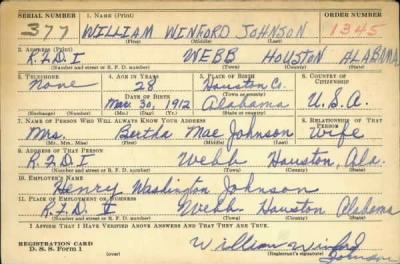 SERIAL NUMBER 1. NAME (Print) ORDER NUMBER
377 WILLIAM WINFORD JOHNSON 1345
(First) (Middle) (Last)
2. ADDRESS (Print)
R.F.D. I WEBB HOUSTON ALABAMA
(Number and street or R. F. D. number) (Town) (County) (State)
3. TELEPHONE 4. AGE IN YEARS 5. PLACE OF BIRTH 6. COUNTRY OF CITIZENSHIP
None 28 Houston Co.
DATE OF BIRTH (Town or county)
Mar. 30, 1912 Alabama U.S.A.
(Exchange) (Number) (Mo.) (Day) (Yr.) (State or country)
7. NAME OF PERSON WHO WILL ALWAYS KNOW YOUR ADDRESS 8. RELATIONSHIP OF THAT PERSON
Mrs. Bertha Mae Johnson Wife
(Mr., Mrs., Miss) (First) (Middle) (Last)
9. ADDRESS OF THAT PERSON
R.F.D. I Webb Houston, Ala.
(Number and street or R. F. D. number) (Town) (County) (State)
10. EMPLOYER'S NAME
Henry Washington Johnson
11. PLACE OF EMPLOYMENT OR BUSINESS
R.F.D. I Webb Houston Alabama
(Number and street or R. F. D. number) (Town) (County) (State)
I AFFIRM THAT I HAVE VERIFIED ABOVE ANSWERS AND THAT THEY ARE TRUE.
REGISTRATION CARD
D. S. S. Form 1 (over)
William Winford Johnson
(Registrant's signature)